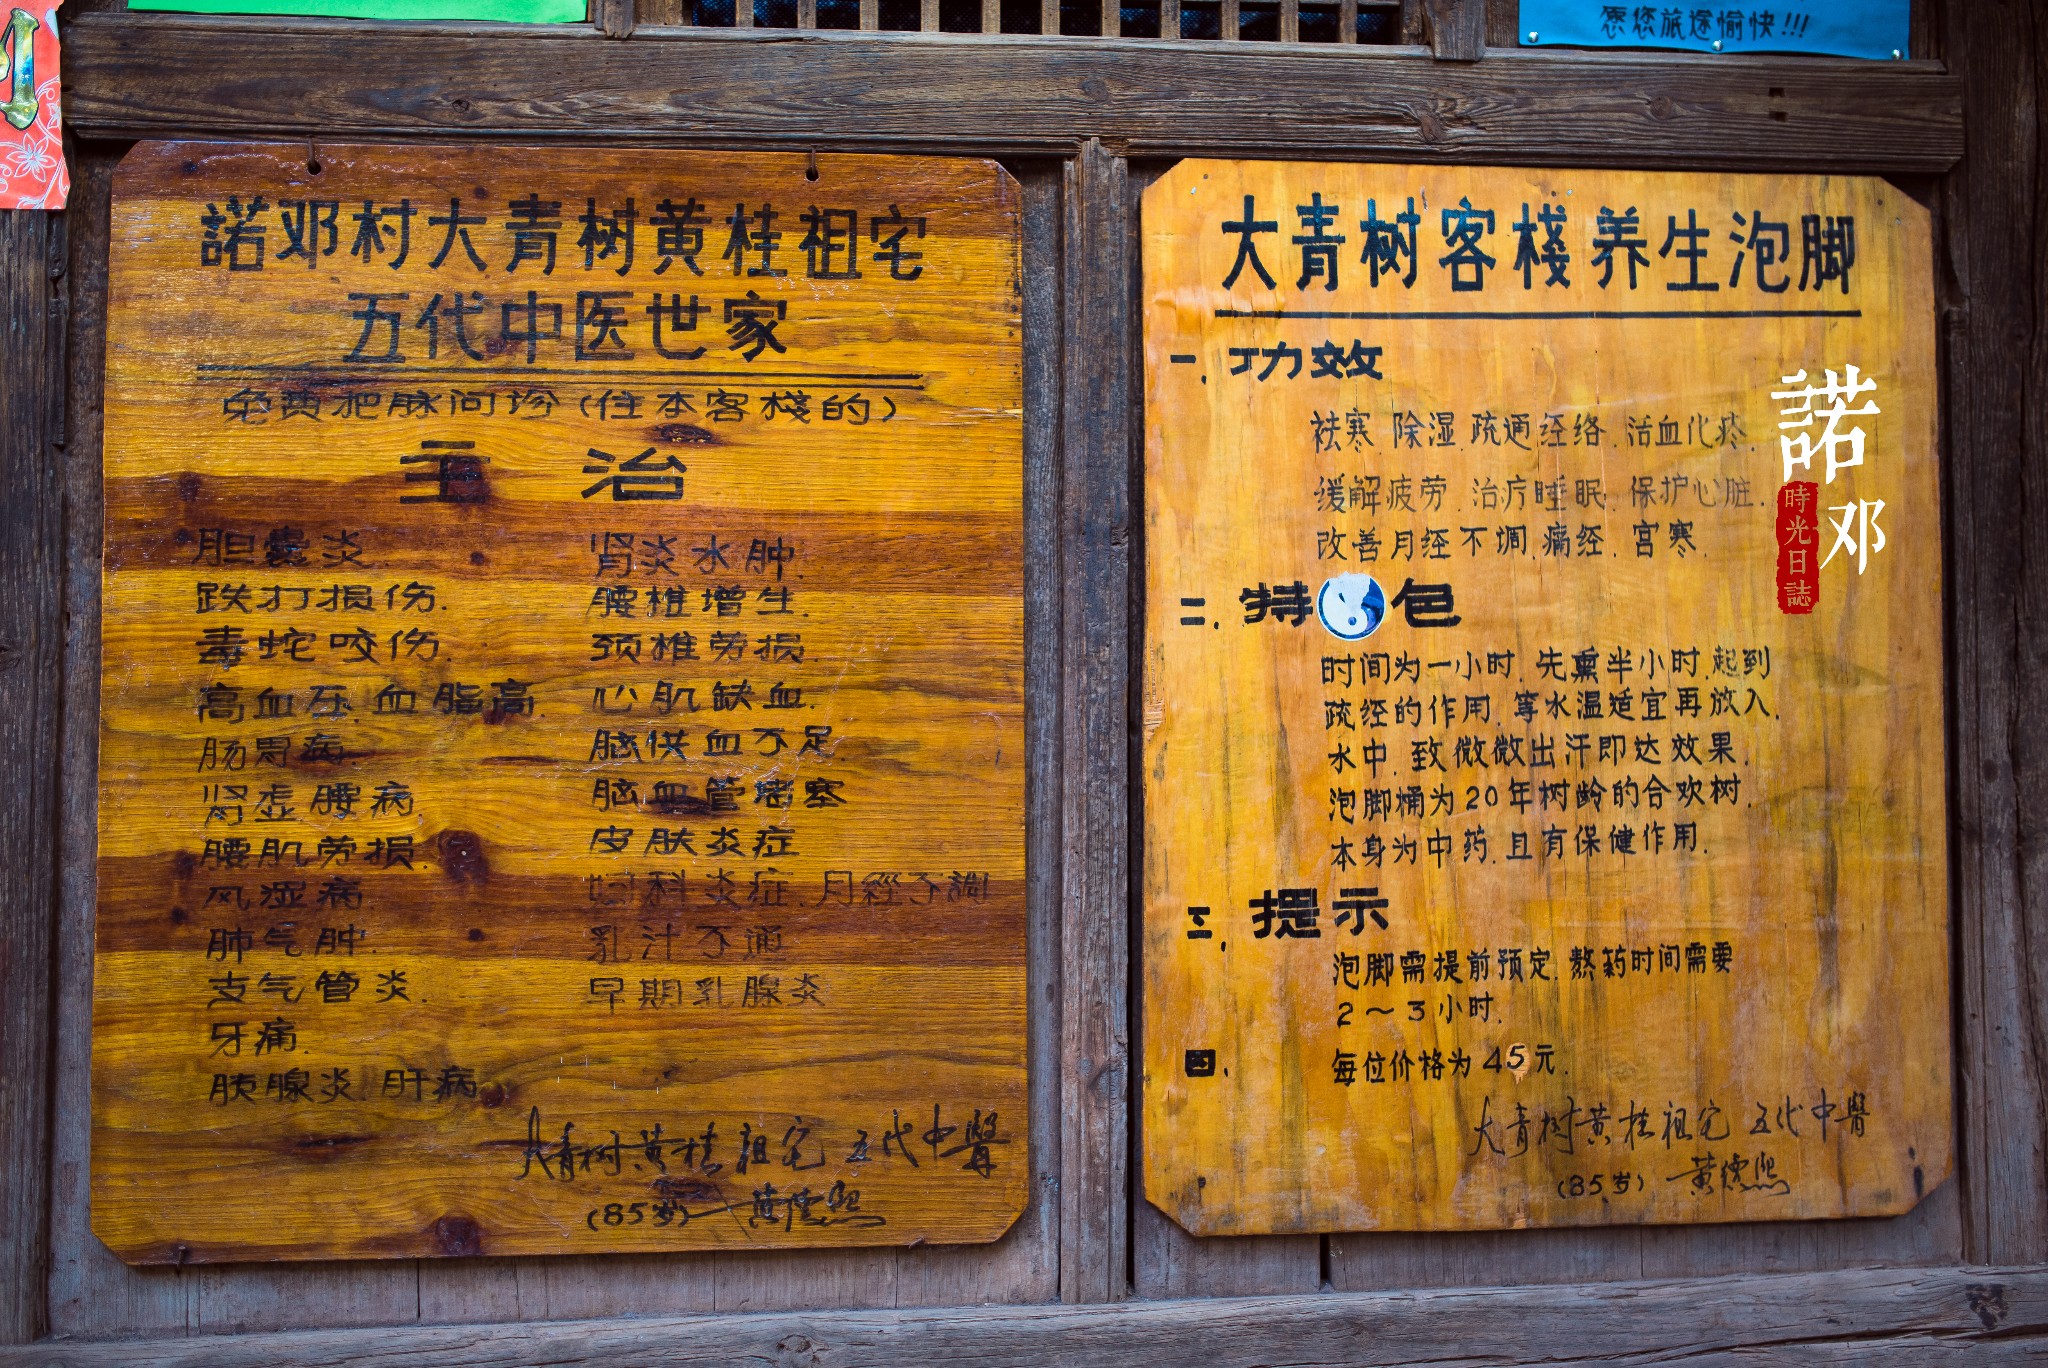 愿您旅途愉快!!!
諾邓村大青树黄桂祖宅
五代中医世家
免费把脉问诊(住本客栈的)
主治
胆囊炎.
跌打损伤.
毒蛇咬伤.
高血压.血脂高
肠胃病.
肾虚腰病
腰肌劳损.
风湿病.
肺气肿.
支气管炎.
牙痛.
胰腺炎.肝病.
肾炎水肿.
腰椎增生.
颈椎劳损.
心肌缺血.
脑供血不足.
脑血管堵塞
皮肤炎症
妇科炎症.月經不調
乳汁不通
早期乳腺炎
大青树黄桂祖宅 五代中醫
(85岁) 黄德熙
大青树客栈养生泡脚
一.功效
祛寒.除湿.疏通经络.活血化疼.
缓解疲劳.治疗睡眠.保护心脏.
改善月经不调.痛经.宫寒.
二.特色
时间为一小时.先熏半小时.起到
疏经的作用.等水温适宜再放入.
水中.致微微出汗即达效果.
泡脚桶为20年树龄的合欢树.
本身为中药.且有保健作用.
三.提示
泡脚需提前预定.熬药时间需要
2～3小时.
四. 每位价格为45元.
大青树黄桂祖宅 五代中醫
(85岁) 黄德熙
諾邓
時光日誌